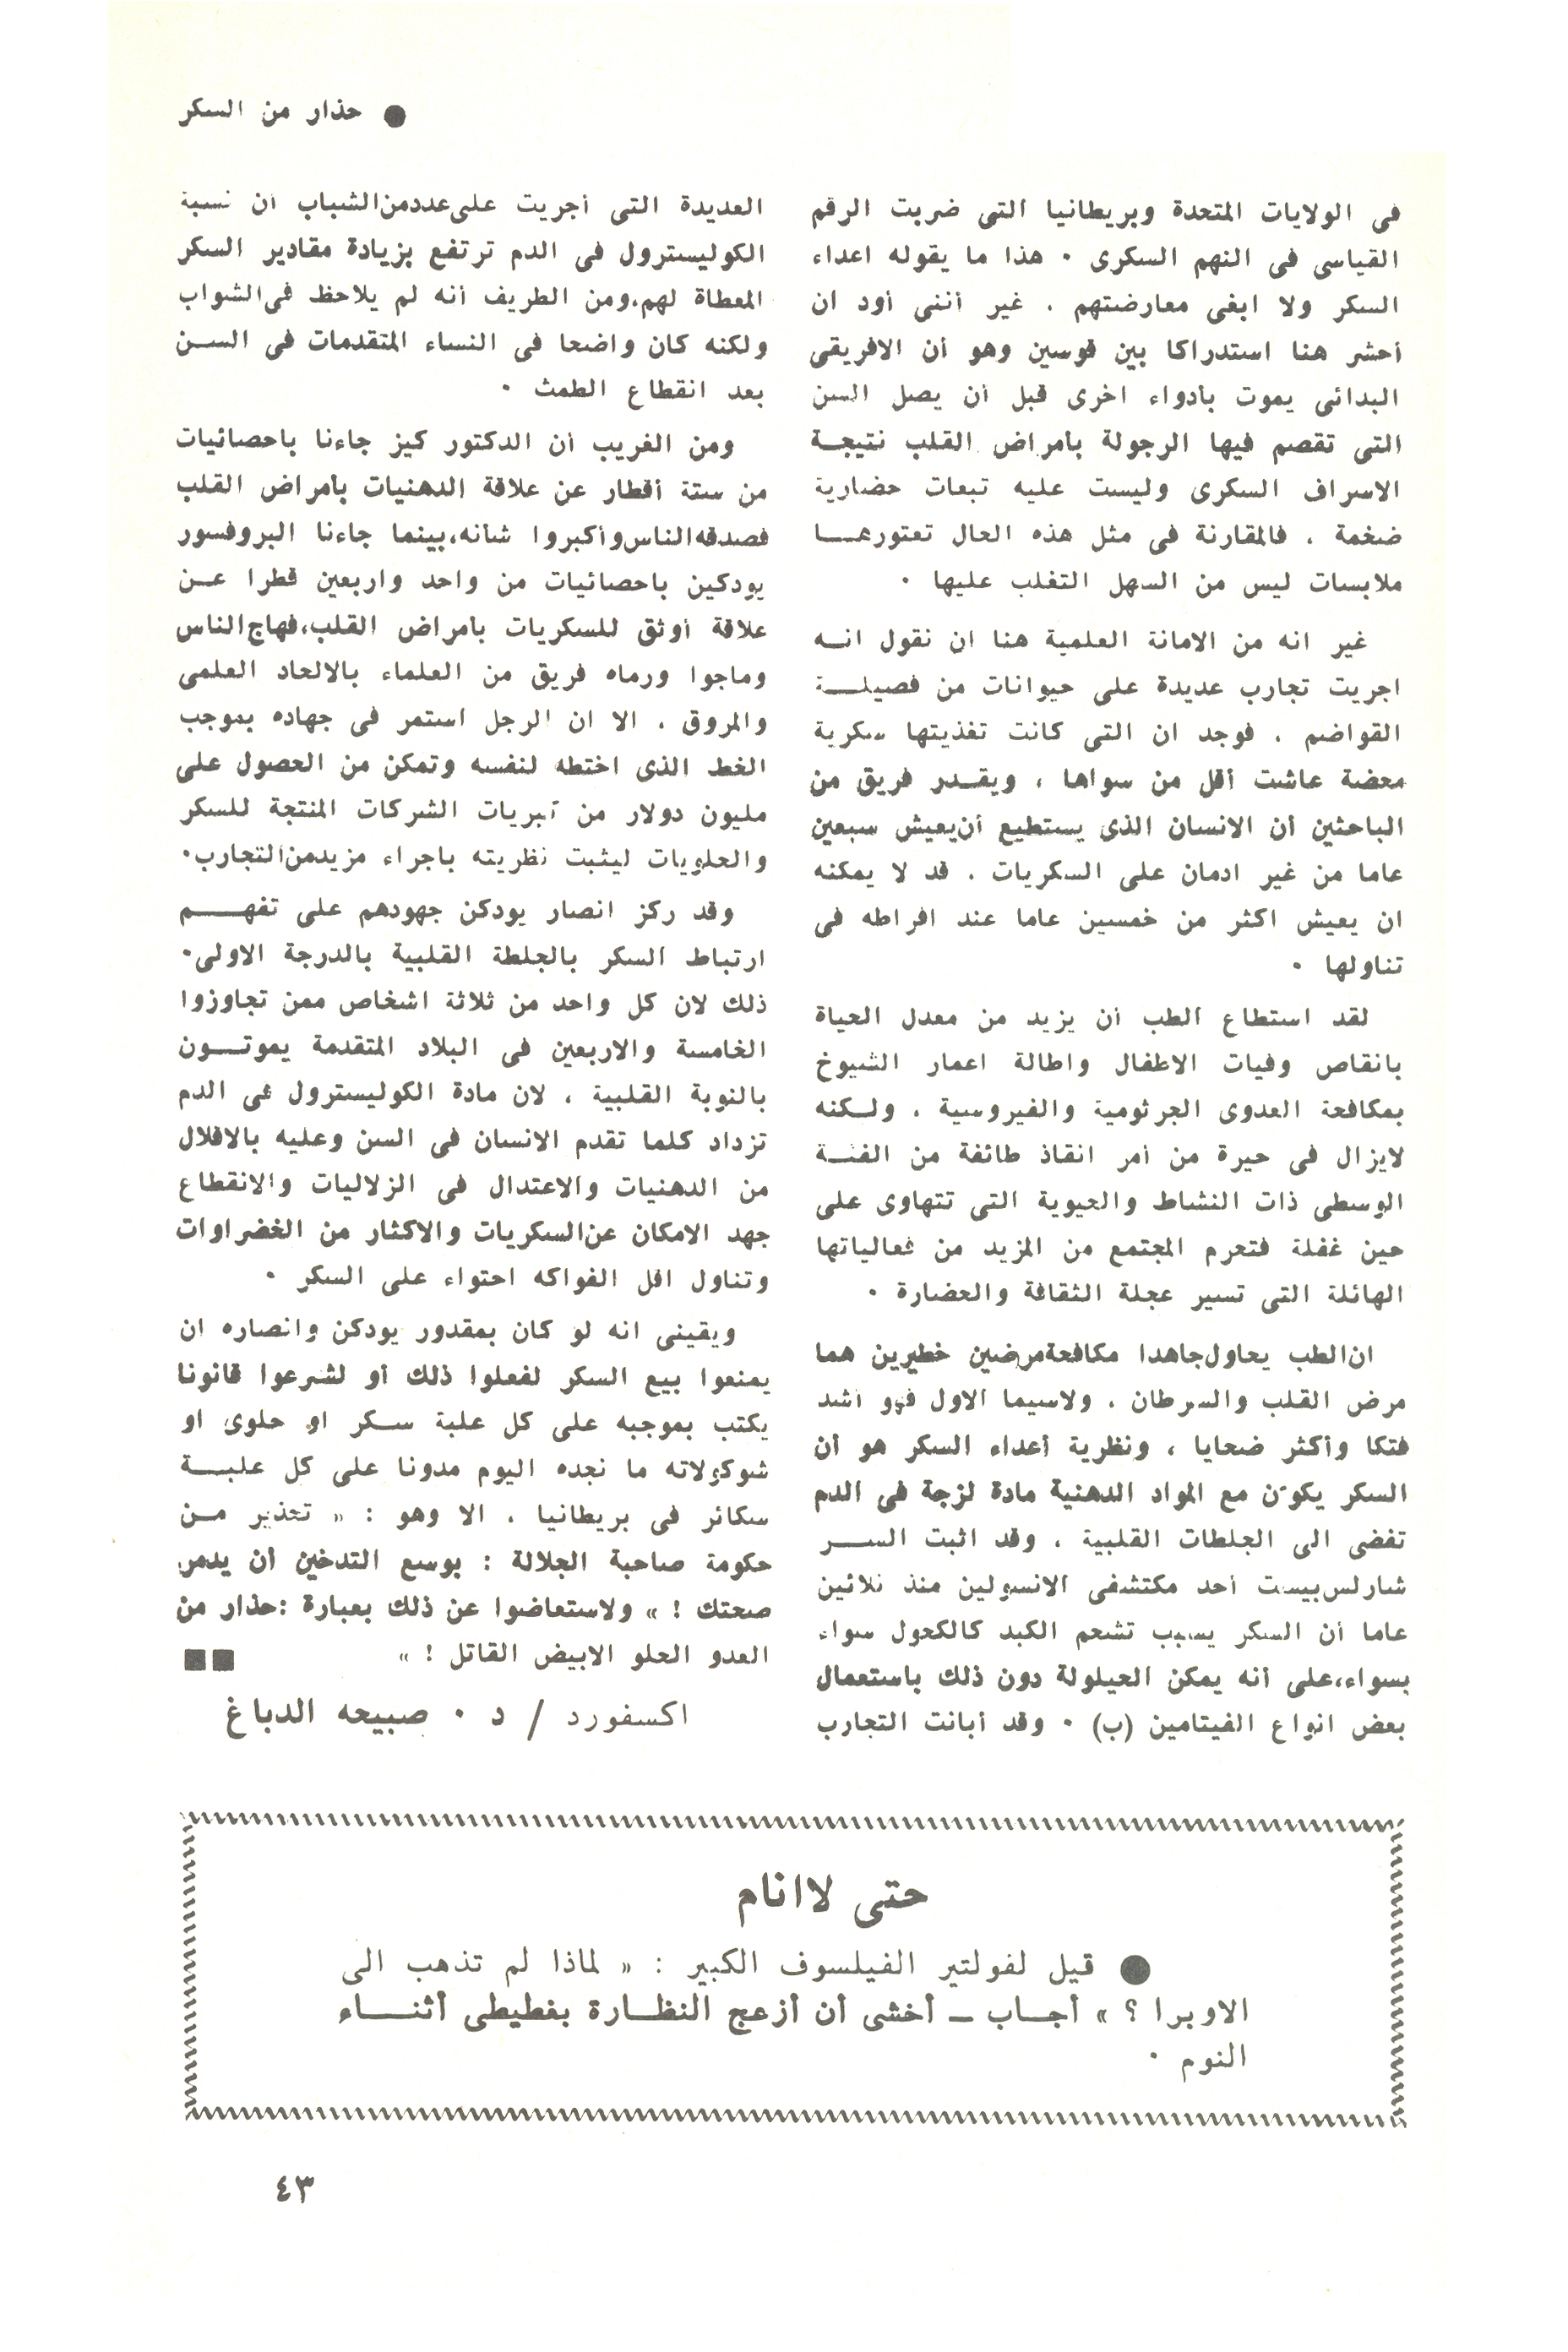 ● حذار من السكر
فى الولايات المتحدة وبريطانيا التى ضربت الرقم
القياسى فى النهم السكرى . هذا ما يقوله اعداء
السكر ولا ابغى معارضتهم . غير أننى أود ان
أحشر هنا استدراكا بين قوسين وهو أن الافريقى
البدائى يموت بأدواء اخرى قبل أن يصل السن
التى تقصم فيها الرجولة بأمراض القلب نتيجـة
الاسراف السكرى وليست عليه تبعات حضارية
ضخمة . فالمقارنة فى مثل هذه الحال تعتورهـا
ملابسات ليس من السهل التغلب عليها .
غير انه من الامانة العلمية هنا ان نقول انـه
اجريت تجارب عديدة على حيوانات من فصيلـة
القواضم . فوجد ان التى كانت تغذيتها سكرية
محضة عاشت أقل من سواها ، ويقـدر فريق من
الباحثين أن الانسان الذى يستطيع أن يعيش سبعين
عاما من غير ادمان على السكريات . قد لا يمكنه
ان يعيش اكثر من خمسين عاما عند افراطه فى
تناولها .
لقد استطاع الطب أن يزيد من معدل الحياة
بانقاص وفيات الاطفال واطالة اعمار الشيوخ
بمكافحة العدوى الجرثومية والفيروسية . ولـكنه
لايزال فى حيرة من أمر انقاذ طائفة من الفئـة
الوسطى ذات النشاط والحيوية التى تتهاوى على
حين غفلة فتحرم المجتمع من المزيد من فعالياتها
الهائلة التى تسير عجلة الثقافة والحضارة .
ان الطب يحاول جاهدا مكافحة مرضين خطيرين هما
مرض القلب والسرطان . ولاسيما الاول فهو أشد
فتكا وأكثر ضحايا ، ونظرية أعداء السكر هو أن
السكر يكوّن مع المواد الدهنية مادة لزجة فى الدم
تفضى الى الجلطات القلبية . وقد اثبت الســر
شارلس بيست أحد مكتشفى الانسولين منذ ثلاثين
عاما أن السكر يسبب تشحم الكبد كالكحول سواء
بسواء،على أنه يمكن الحيلولة دون ذلك باستعمال
بعض انواع الفيتامين (ب) . وقد أبانت التجارب
العديدة التى أجريت على عدد من الشباب ان نسبة
الكوليسترول فى الدم ترتفع بزيادة مقادير السكر
المعطاة لهم،ومن الطريف أنه لم يلاحظ فى الشواب
ولكنه كان واضحا فى النساء المتقدمات فى السـن
بعد انقطاع الطمث .
ومن الغريب أن الدكتور كيز جاءنا باحصائيات
من ستة أقطار عن علاقة الدهنيات بأمراض القلب
فصدقه الناس وأكبروا شأنه،بينما جاءنا البروفسور
يودكين باحصائيات من واحد واربعين قطرا عـن
علاقة أوثق للسكريات بامراض القلب،فهاج الناس
وماجوا ورماه فريق من العلماء بالالحاد العلمى
والمروق . الا ان الرجل استمر فى جهاده بموجب
الخط الذى اختطه لنفسه وتمكن من الحصول على
مليون دولار من كبريات الشركات المنتجة للسكر
والحلويات ليثبت نظريته باجراء مزيد من التجارب.
وقد ركز انصار يودكن جهودهم على تفهــم
ارتباط السكر بالجلطة القلبية بالدرجة الاولى.
ذلك لان كل واحد من ثلاثة اشخاص ممن تجاوزوا
الخامسة والاربعين فى البلاد المتقدمة يموتـون
بالنوبة القلبية . لان مادة الكوليسترول فى الدم
تزداد كلما تقدم الانسان فى السن وعليه بالاقلال
من الدهنيات والاعتدال فى الزلاليات والانقطاع
جهد الامكان عن السكريات والاكثار من الخضراوات
وتناول اقل الفواكه احتواء على السكر .
ويقينى انه لو كان بمقدور يودكن وانصاره ان
يمنعوا بيع السكر لفعلوا ذلك أو لشرعوا قانونا
يكتب بموجبه على كل علبة سـكر او حلوى او
شوكولاته ما نجده اليوم مدونا على كل علبـة
سكائر فى بريطانيا . الا وهو : « تحذير مـن
حكومة صاحبة الجلالة : بوسع التدخين أن يدمر
صحتك ! » ولاستعاضوا عن ذلك بعبارة :حذار من
العدو الحلو الابيض القاتل ! » ■■
اكسفورد / د . صبيحه الدباغ
حتى لاانام
● قيل لفولتير الفيلسوف الكبير : « لماذا لم تذهب الى
الاوبرا ؟ » أجـاب ــ أخشى أن أزعج النظـارة بغطيطى أثنـاء
النوم .
٤٣